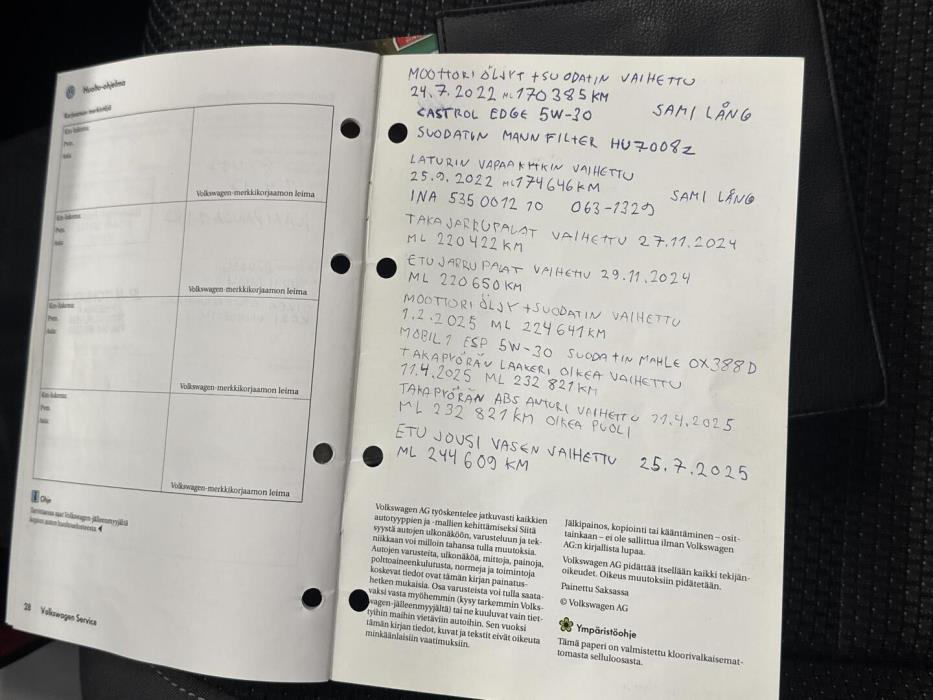 Huolto-ohjelma
Korjaamon merkintöjä
Km-lukema:
Pvm.
Volkswagen-merkkikorjaamon leima
Km-lukema:
Pvm.
Volkswagen-merkkikorjaamon leima
Km-lukema:
Pvm.
Volkswagen-merkkikorjaamon leima
Km-lukema:
Pvm.
Volkswagen-merkkikorjaamon leima
Ohje
28 Volkswagen Service
MOOTTORI ÖLJYT +SUODATIN VAIHETTU
24.7.2022 ML 170385 KM SAMI LÅNG
CASTROL EDGE 5W-30
SUODATIN MANN FILTER HU7008z
LATURIN VAPAAKYTKIN VAIHETTU
25.9.2022 ML 174646 KM SAMI LÅNG
INA 535 0012 10 063-1329
TAKA JARRUPALAT VAIHETTU 27.11.2024
ML 220422 KM
ETU JARRU PALAT VAIHETTU 29.11.2024
ML 220650 KM
MOOTTORI ÖLJY +SUODATIN VAIHETTU
1.2.2025 ML 224641 KM
MOBIL 1 ESP 5W-30 SUODATIN MAHLE OX388D
TAKAPYÖRÄN LAAKERI OIKEA VAIHETTU
11.4.2025 ML 232 821 KM
TAKAPYÖRÄN ABS ANTURI VAIHETTU 11.4.2025
ML 232 821 KM OIKEA PUOLI
ETU JOUSI VASEN VAIHETTU 25.7.2025
ML 244 609 KM
Volkswagen AG työskentelee jatkuvasti kaikkien
autotyyppien ja -mallien kehittämiseksi Siitä
syystä autojen ulkonäköön, varusteluun ja tek-
niikkaan voi milloin tahansa tulla muutoksia.
Autojen varusteita, ulkonäköä, mittoja, painoja,
polttoaineenkulutusta, normeja ja toimintoja
koskevat tiedot ovat tämän kirjan painatus-
hetken mukaisia. Osa varusteista voi tulla saata-
vaksi vasta myöhemmin (kysy tarkemmin Volks-
wagen-jälleenmyyjältä) tai ne kuuluvat vain tiet-
tyihin maihin vietäviin autoihin. Sen vuoksi
tämän kirjan tiedot, kuvat ja tekstit eivät oikeuta
minkäänlaisiin vaatimuksiin.
Jälkipainos, kopiointi tai kääntäminen – osit-
tainkaan – ei ole sallittua ilman Volkswagen
AG:n kirjallista lupaa.
Volkswagen AG pidättää itsellään kaikki tekijän-
oikeudet. Oikeus muutoksiin pidätetään.
Painettu Saksassa
© Volkswagen AG
Ympäristöohje
Tämä paperi on valmistettu kloorivalkaisemat-
tomasta selluloosasta.